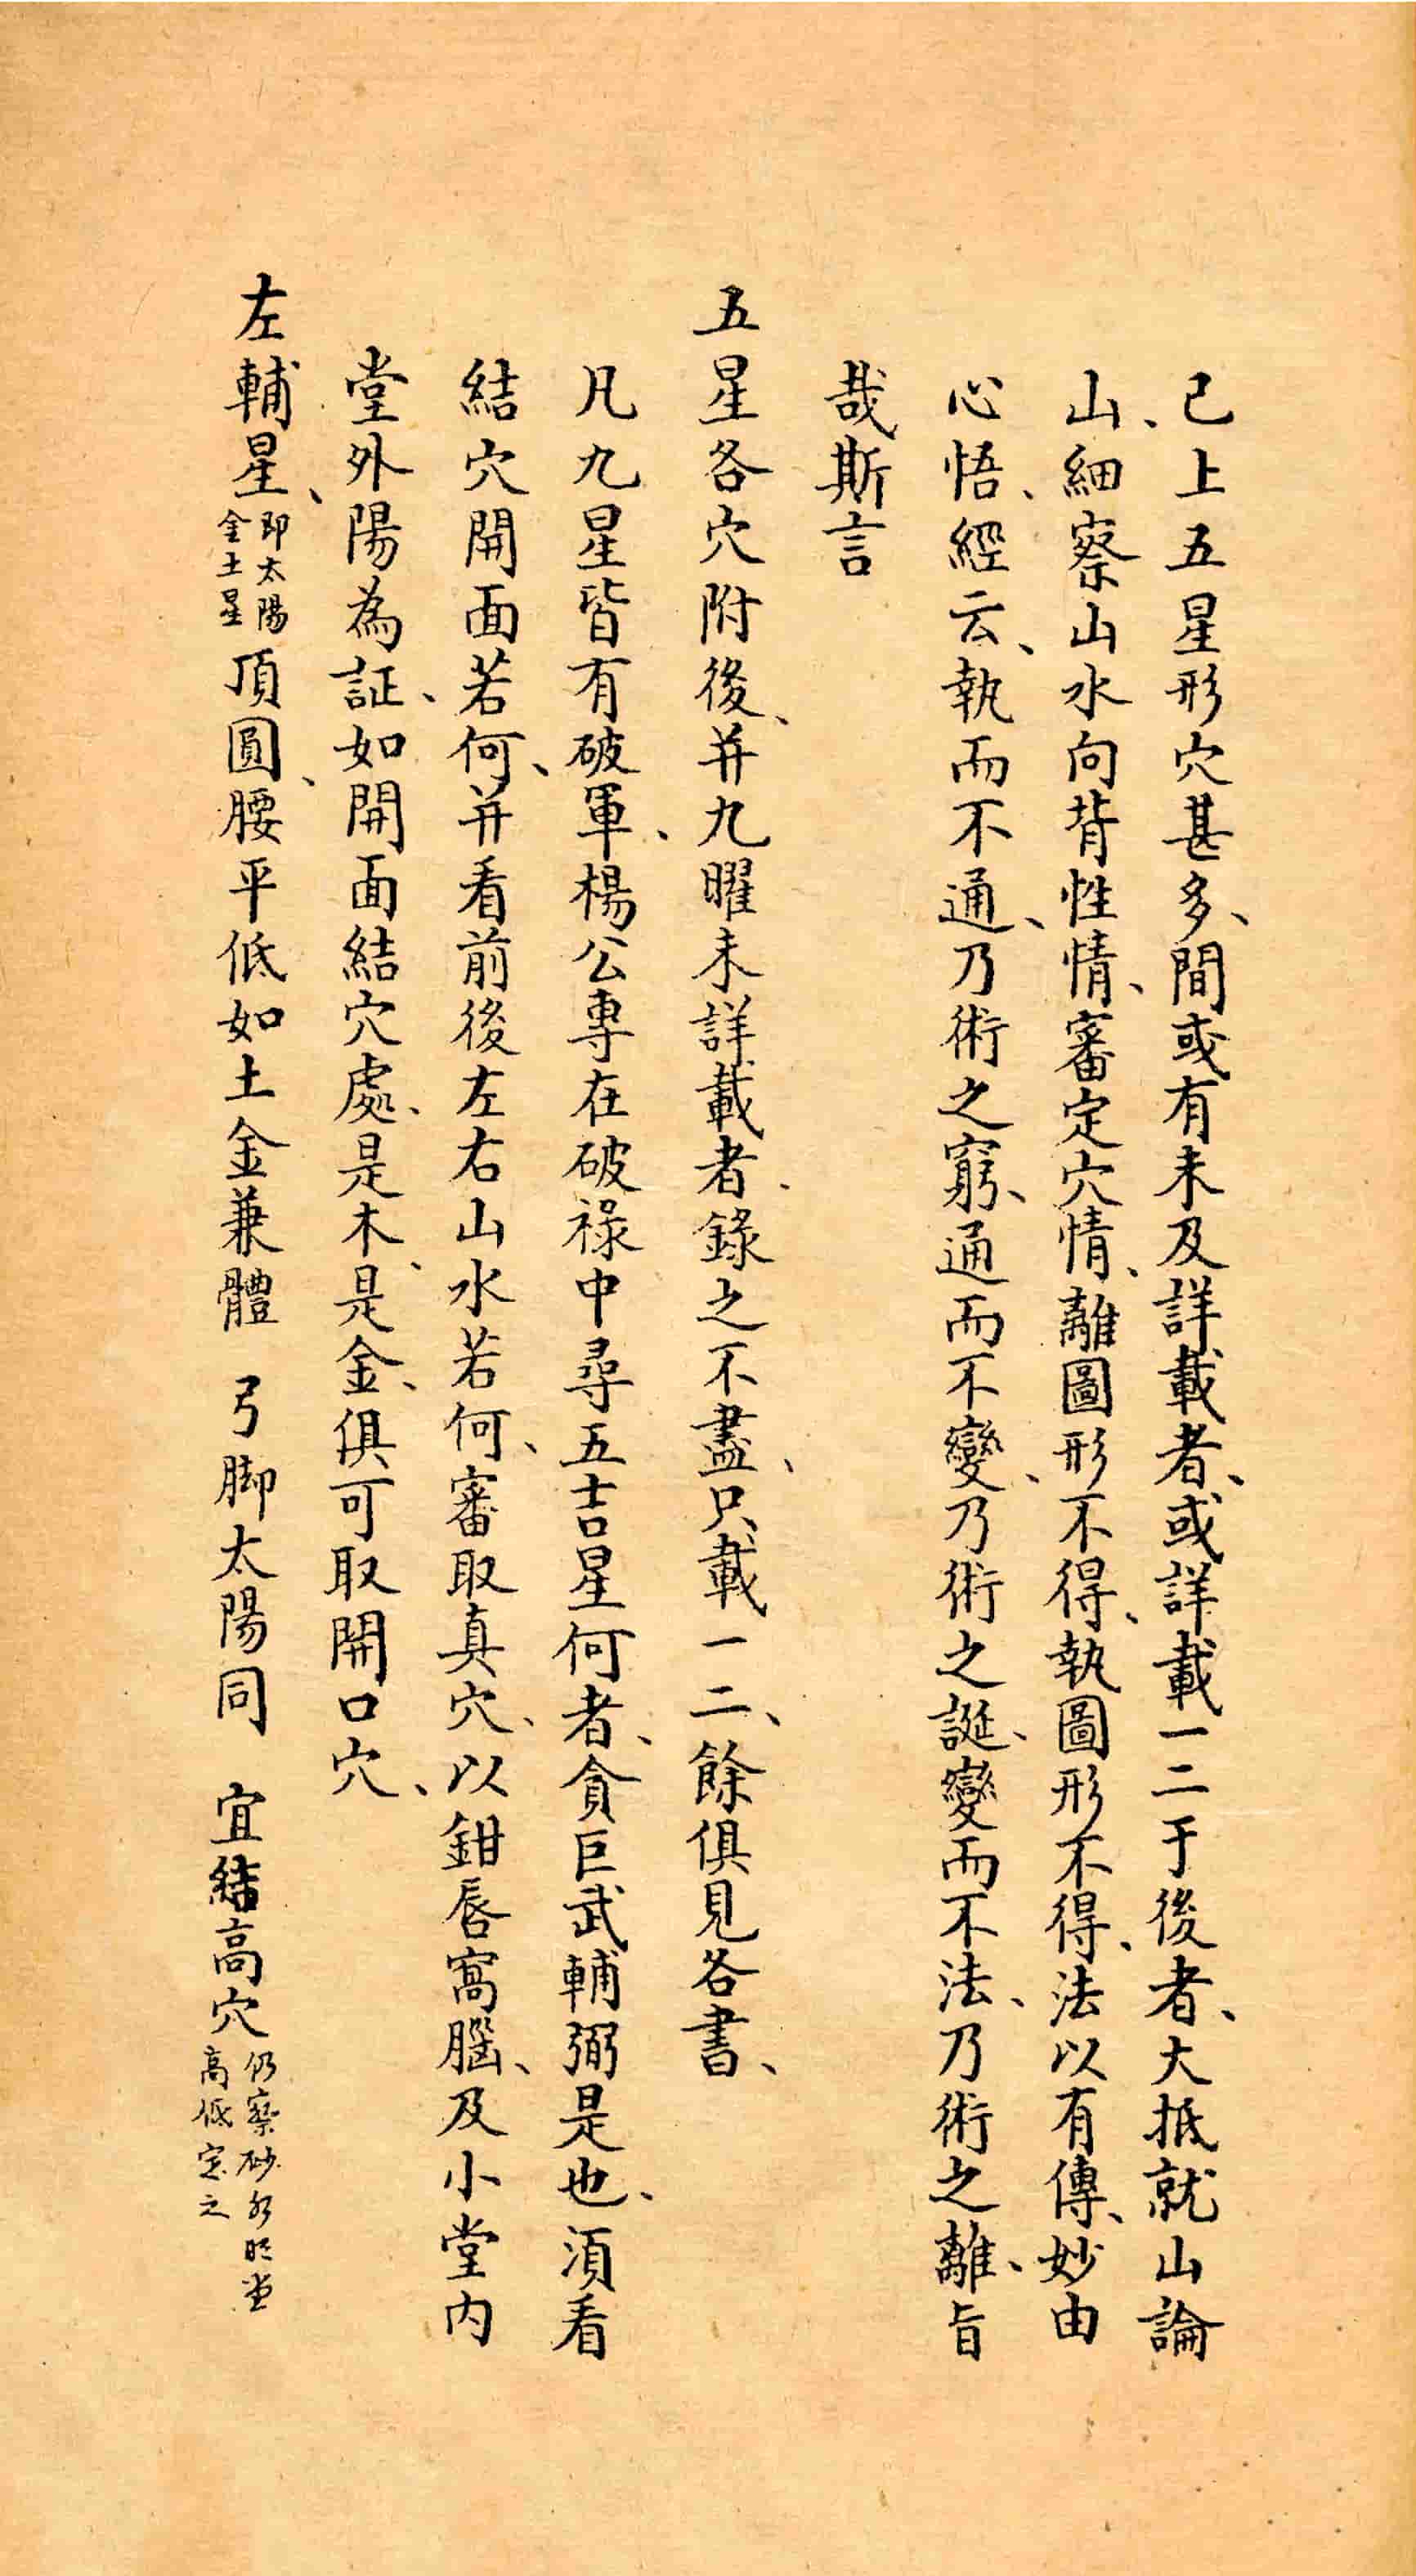 已上五星形穴甚多、間或有未及詳載者、或詳載一二于後者、大抵就山論
山、細察山水向背性情、審定穴情、離圖形不得、執圖形不得、法以有傳、妙由
心悟、經云、執而不通、乃術之窮、通而不變、乃術之誕、變而不法、乃術之離、旨
哉斯言
五星各穴附後、并九曜未詳載者、錄之不盡、只載一二、餘俱見各書、
凡九星皆有破軍、楊公專在破祿中尋五吉星何者、貪巨武輔弼是也、須看
結穴開面若何、并看前後左右山水若何、審取真穴、以鉗唇窩腦、及小堂內
堂外陽為証、如開面結穴處、是木、是金、俱可取開口穴、
左輔星、即太陽金土星頂圓、腰平低如土金兼體 弓脚太陽同 宜結高穴仍察砂水明堂高低定之